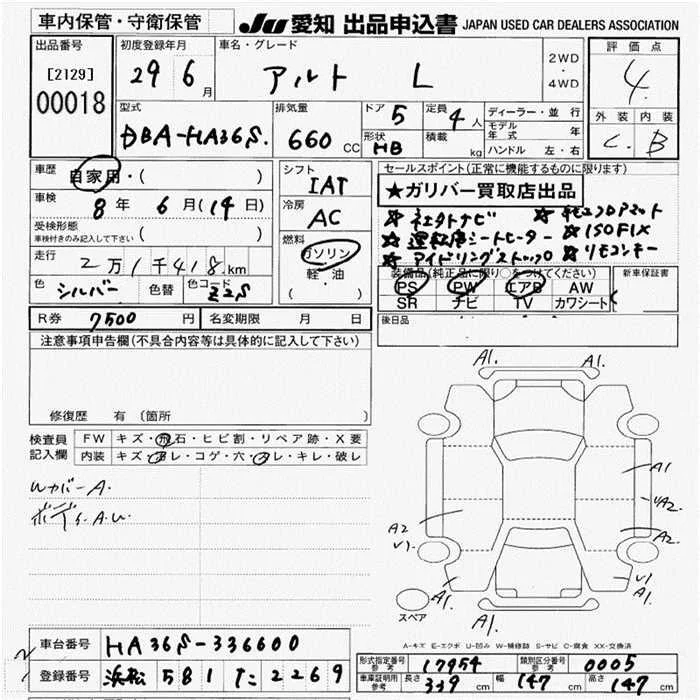 車内保管・守衛保管
JU 愛知 出品申込書 JAPAN USED CAR DEALERS ASSOCIATION
出品番号
[2129]
00018
初度登録年月
29 6月
車名・グレード
アルト L
2WD
・
4WD
評価点
4
外装 内装
C. B
型式
DBA-HA36S.
排気量
660 CC
ドア 5
形状 HB
定員 4 人
積載 kg
ディーラー・並行
モデル年式 年
ハンドル 左・右
車歴
自家用・( )
車検
8年 6月(14日)
受検形態
車検付きのみ記入して下さい ( )
走行
2万1千418km
色 シルバー 色替 色コード Z2S
シフト
IAT
冷房
AC
燃料
ガソリン
・
軽・油
( )
セールスポイント(正常に機能するものに限ります)
★ガリバー買取店出品
☆運転席シートヒーター ☆ISOFIX
☆アイドリングストップ ☆リモコンキー
装備品(純正品に限り○をつけてください)
PS PW エアB AW
SR ナビ TV カワシート
新車保証書
後日品
R券 7500 円 名変期限 月 日
注意事項申告欄(不具合内容等は具体的に記入して下さい)
修復歴 有 〔箇所
検査員
記入欄
FW キズ・飛石・ヒビ割・リペア跡・X要
内装 キズ・ヨレ・コゲ・穴・スレ・キレ・破レ
ボディ A.U.
A1. A1.
A1
A2
A2.
A2
A1. A1.
スペア
A-キズ E-エクボ U-凹み W-補修跡 S-サビ C-腐食 XX-交換済
車台番号 HA36S-336600
登録番号 浜松 581 た 2269
形式指定番号 参考 17954 類別区分番号 参考 0005
車庫証明用 参考 長さ 339 cm 幅 147 cm 高さ 147 cm